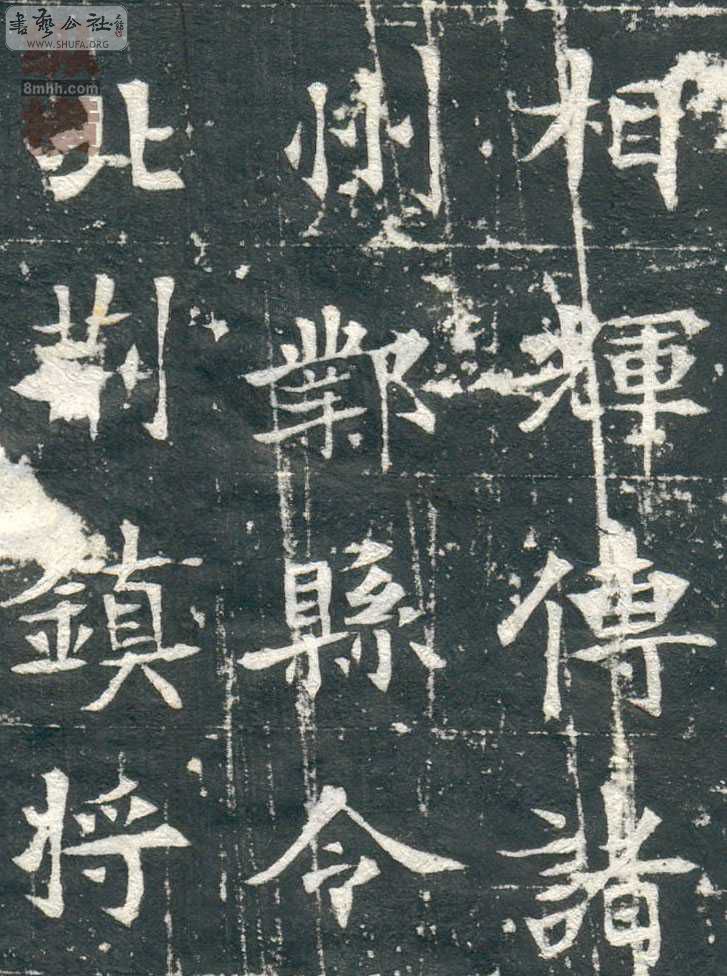 書藝公社
WWW.SHUFA.ORG
8mhh.com
相輝傳諸
州鄴縣令
北荆鎮將